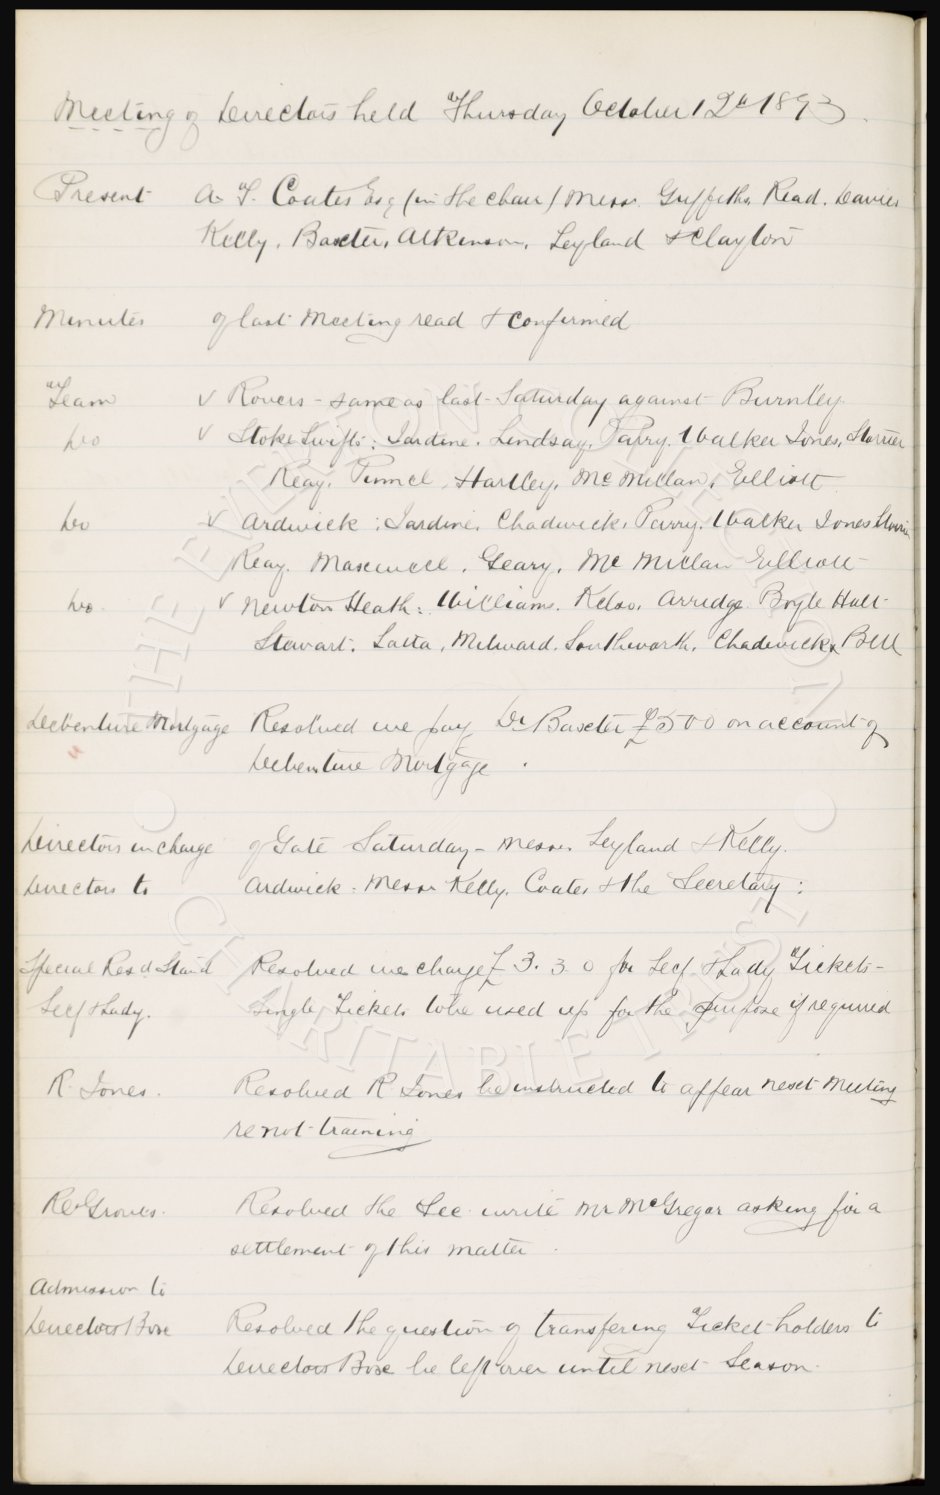 Meeting of Directors held Thursday October 12th 1893.
Present A. T. Coates Esq (in the chair) Messrs. Griffiths Read. Davies
Kelly, Baxter, Atkinson, Leyland & Clayton
Minutes of last Meeting read & confirmed
Team v Rovers - same as last Saturday against Burnley.
Do v Stoke Swifts: Jardine. Lindsay, Parry, Walker Jones, Storrier
Reay, Pinnell, Hartley, McMillan, Elliott
Do v Ardwick: Jardine, Chadwick, Parry, Walker Jones Storrier
Reay. Maxwell. Geary, McMillan Elliott
Do. v Newton Heath: Williams. Kelso, Arridge Boyle Holt
Stewart. Latta, Milward. Southworth, Chadwick & Bell
Debenture Mortgage Resolved we pay Dr Baxter £500 on account of
Debenture Mortgage.
Directors in charge of Gate Saturday - Messrs. Leyland & Kelly.
Directors to Ardwick - Messrs Kelly, Coates & the Secretary:
Special Resd Stand Resolved we charge £3. 3. 0 for Self & Lady Tickets -
Self & Lady. Single Tickets to be used up for the purpose if required
R. Jones. Resolved R Jones be instructed to appear next Meeting
re not training
Re Groves. Resolved the Sec write Mr McGregor asking for a
settlement of this matter.
Admission to
Directors Box Resolved the question of transfering Ticket holders to
Directors Box be left over until next Season.
THE EVERTON COLLECTION
CHARITABLE TRUST